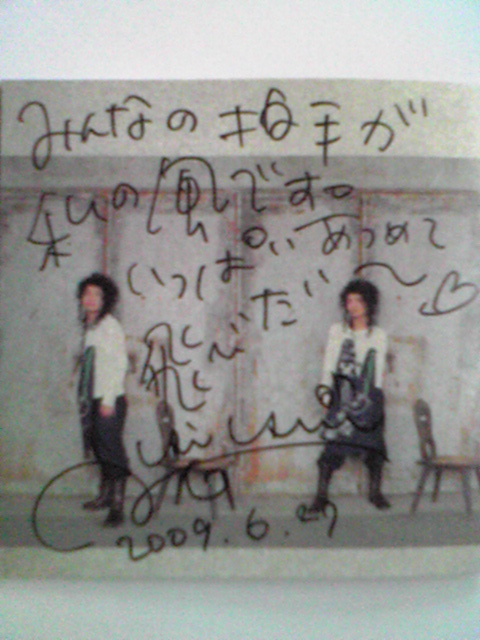 みんなの拍手が
私の風です。
いっぱいあつめて
飛べだい〜♡
2009.6.27